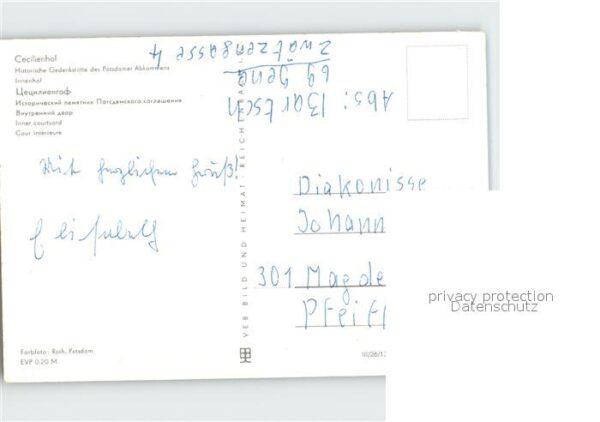 Cecilienhof
Historische Gedenkstätte des Potsdamer Abkommens
Innenhof
Цецилиенгоф
Исторический памятник Потсдамского соглашения
Внутренний двор
Inner courtyard
Cour intérieure
Mit herzlichem Gruß!
Abs: Bartsch
69 Jena
Zwätzengasse 4
VEB BILD UND HEIMAT REICH
Diakonisse
Johann
301 Magde
Pfeif
Farbfoto: Roth, Potsdam
EVP 0.20 M
privacy protection
Datenschutz